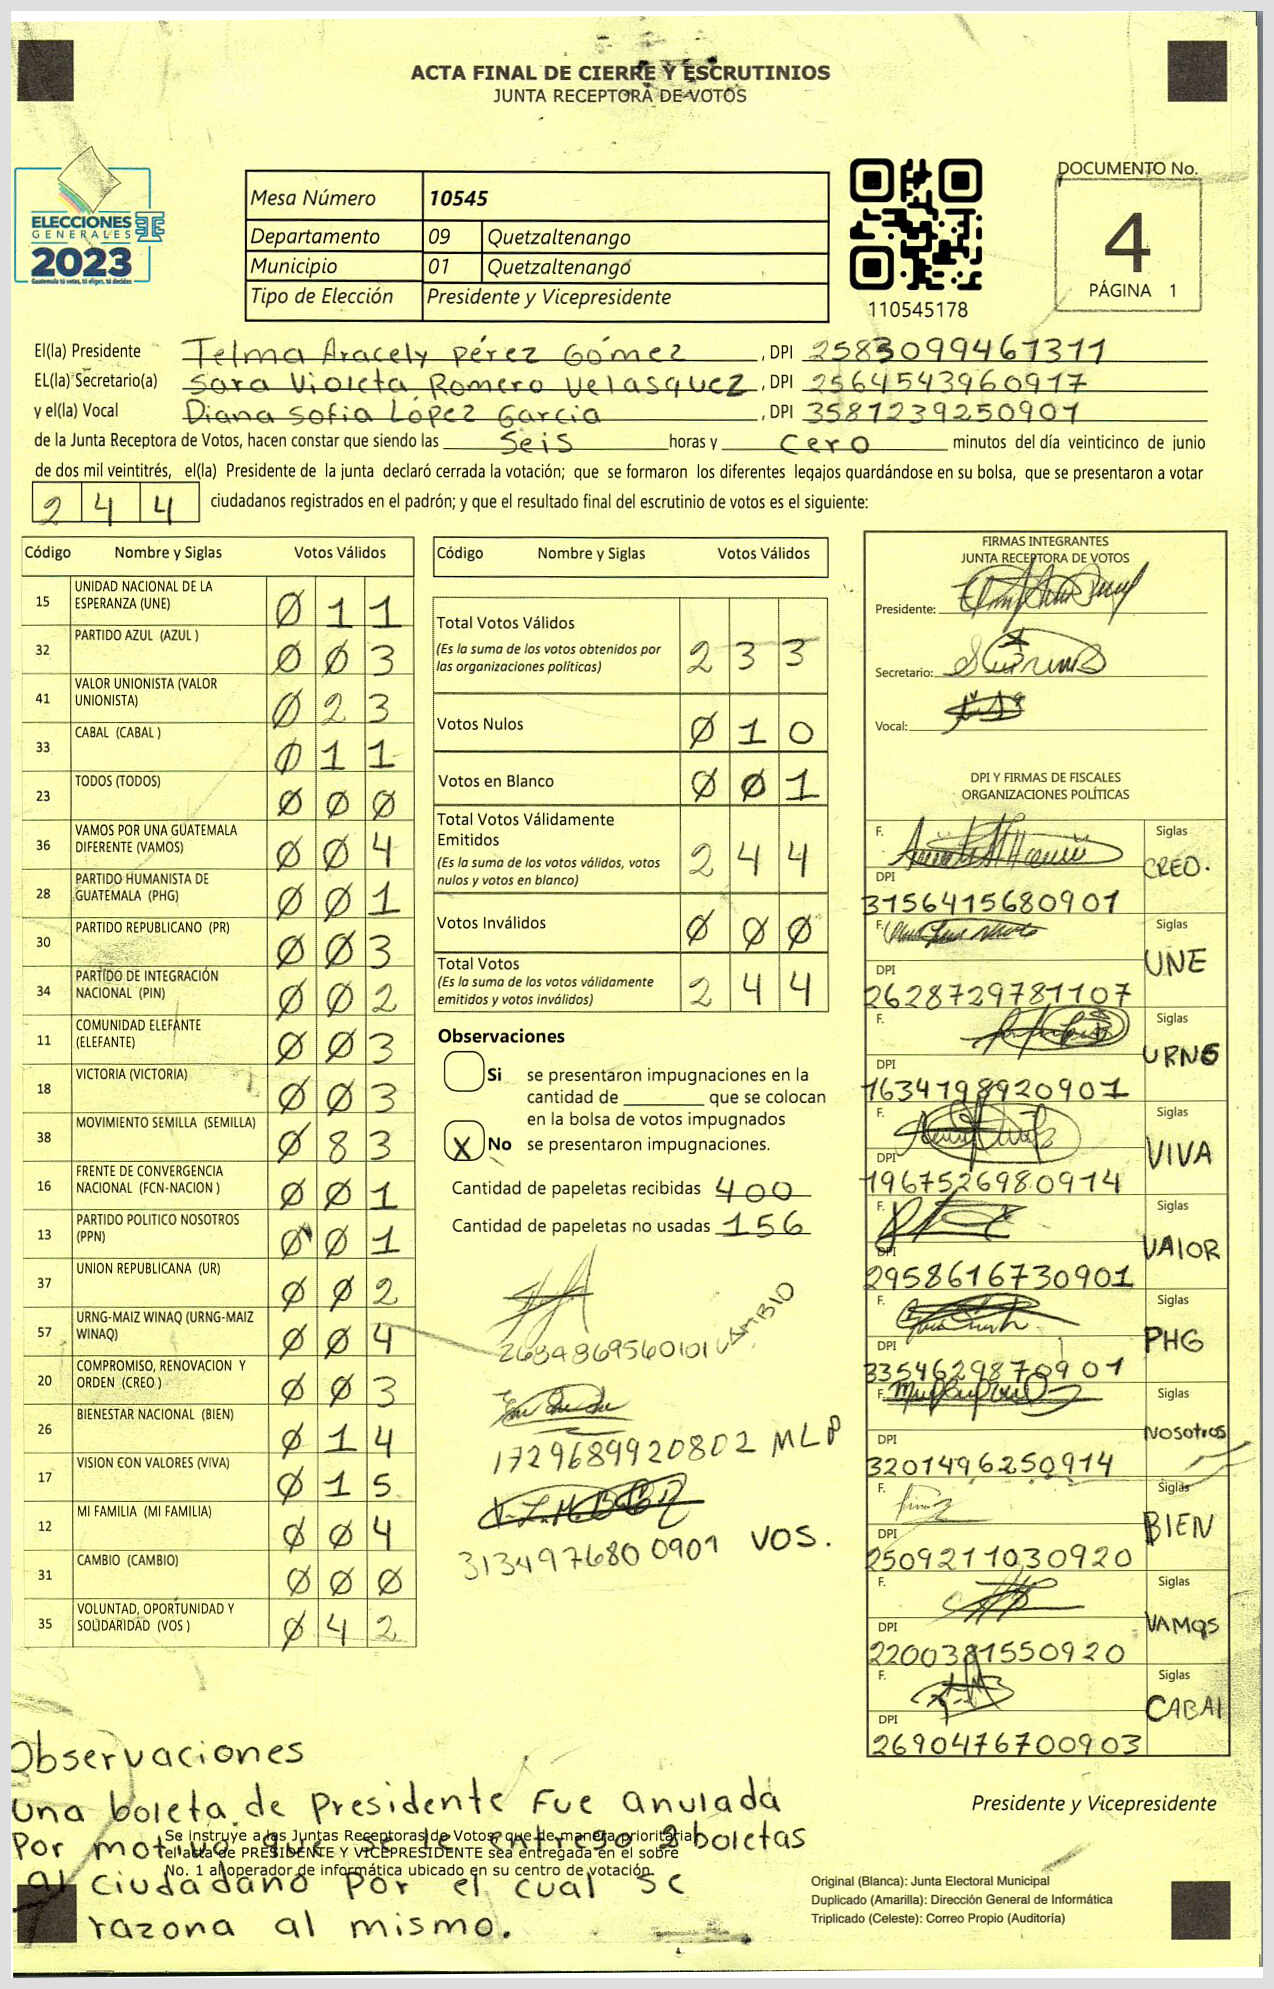 ACTA FINAL DE CIERRE Y ESCRUTINIOS
JUNTA RECEPTORA DE VOTOS
ELECCIONES
GENERALES
2023
Guatemala tú votas, tú eliges, tú decides
Mesa Número 10545
Departamento 09 Quetzaltenango
Municipio 01 Quetzaltenango
Tipo de Elección Presidente y Vicepresidente
110545178
DOCUMENTO No.
4
PÁGINA 1
El(la) Presidente Telma Aracely Pérez Gómez, DPI 2583099461311
EL(la) Secretario(a) Sara Violeta Romero Velasquez, DPI 2564543960917
y el(la) Vocal Diana Sofia López Garcia, DPI 3581239250901
de la Junta Receptora de Votos, hacen constar que siendo las Seis horas y cero minutos del día veinticinco de junio
de dos mil veintitrés, el(la) Presidente de la junta declaró cerrada la votación; que se formaron los diferentes legajos guardándose en su bolsa, que se presentaron a votar
244 ciudadanos registrados en el padrón; y que el resultado final del escrutinio de votos es el siguiente:
Código Nombre y Siglas Votos Válidos
15 UNIDAD NACIONAL DE LA ESPERANZA (UNE) 011
32 PARTIDO AZUL (AZUL ) 003
41 VALOR UNIONISTA (VALOR UNIONISTA) 023
33 CABAL (CABAL ) 011
23 TODOS (TODOS) 000
36 VAMOS POR UNA GUATEMALA DIFERENTE (VAMOS) 004
28 PARTIDO HUMANISTA DE GUATEMALA (PHG) 001
30 PARTIDO REPUBLICANO (PR) 003
34 PARTIDO DE INTEGRACIÓN NACIONAL (PIN) 002
11 COMUNIDAD ELEFANTE (ELEFANTE) 003
18 VICTORIA (VICTORIA) 003
38 MOVIMIENTO SEMILLA (SEMILLA) 083
16 FRENTE DE CONVERGENCIA NACIONAL (FCN-NACION ) 001
13 PARTIDO POLITICO NOSOTROS (PPN) 001
37 UNION REPUBLICANA (UR) 002
57 URNG-MAIZ WINAQ (URNG-MAIZ WINAQ) 004
20 COMPROMISO, RENOVACION Y ORDEN (CREO ) 003
26 BIENESTAR NACIONAL (BIEN) 014
17 VISION CON VALORES (VIVA) 015
12 MI FAMILIA (MI FAMILIA) 004
31 CAMBIO (CAMBIO) 000
35 VOLUNTAD, OPORTUNIDAD Y SOLIDARIDAD (VOS ) 042
Código Nombre y Siglas Votos Válidos
Total Votos Válidos 233
(Es la suma de los votos obtenidos por
las organizaciones políticas)
Votos Nulos 010
Votos en Blanco 001
Total Votos Válidamente
Emitidos 244
(Es la suma de los votos válidos, votos
nulos y votos en blanco)
Votos Inválidos 000
Total Votos 244
(Es la suma de los votos válidamente
emitidos y votos inválidos)
Observaciones
Si se presentaron impugnaciones en la
cantidad de ________ que se colocan
en la bolsa de votos impugnados
X No se presentaron impugnaciones.
Cantidad de papeletas recibidas 400
Cantidad de papeletas no usadas 156
CAMBIO
1729689920802 MLP
3134976800901 VOS.
FIRMAS INTEGRANTES
JUNTA RECEPTORA DE VOTOS
Presidente:
Secretario:
Vocal:
DPI Y FIRMAS DE FISCALES
ORGANIZACIONES POLÍTICAS
F. Siglas CREO.
DPI 3156415680901
F. Siglas UNE
DPI 2628729781107
F. Siglas URNG
DPI 1634798920901
F. Siglas VIVA
DPI 1967526980914
F. Siglas VAlOR
DPI 2958616730901
F. Siglas PHG
DPI 3354629870901
F. Siglas Nosotros
DPI 3201496250914
F. Siglas BIEN
DPI 2509211030920
F. Siglas VAMOS
DPI 2200381550920
F. Siglas CABAl
DPI 2690476700903
Presidente y Vicepresidente
Observaciones
Una boleta de Presidente Fue anulada
Por motivo que se le entrego 2 boletas
al ciudadano Por el cual se
razona al mismo.
Se instruye a las Juntas Receptoras de Votos, que de manera prioritaria
el acta de PRESIDENTE Y VICEPRESIDENTE sea entregada en el sobre
No. 1 al operador de informática ubicado en su centro de votación.
Original (Blanca): Junta Electoral Municipal
Duplicado (Amarilla): Dirección General de Informática
Triplicado (Celeste): Correo Propio (Auditoría)